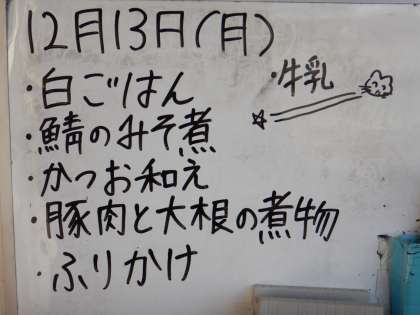 12月13日(月)
・白ごはん
・鯖のみそ煮
・かつお和え
・豚肉と大根の煮物
・ふりかけ
・牛乳